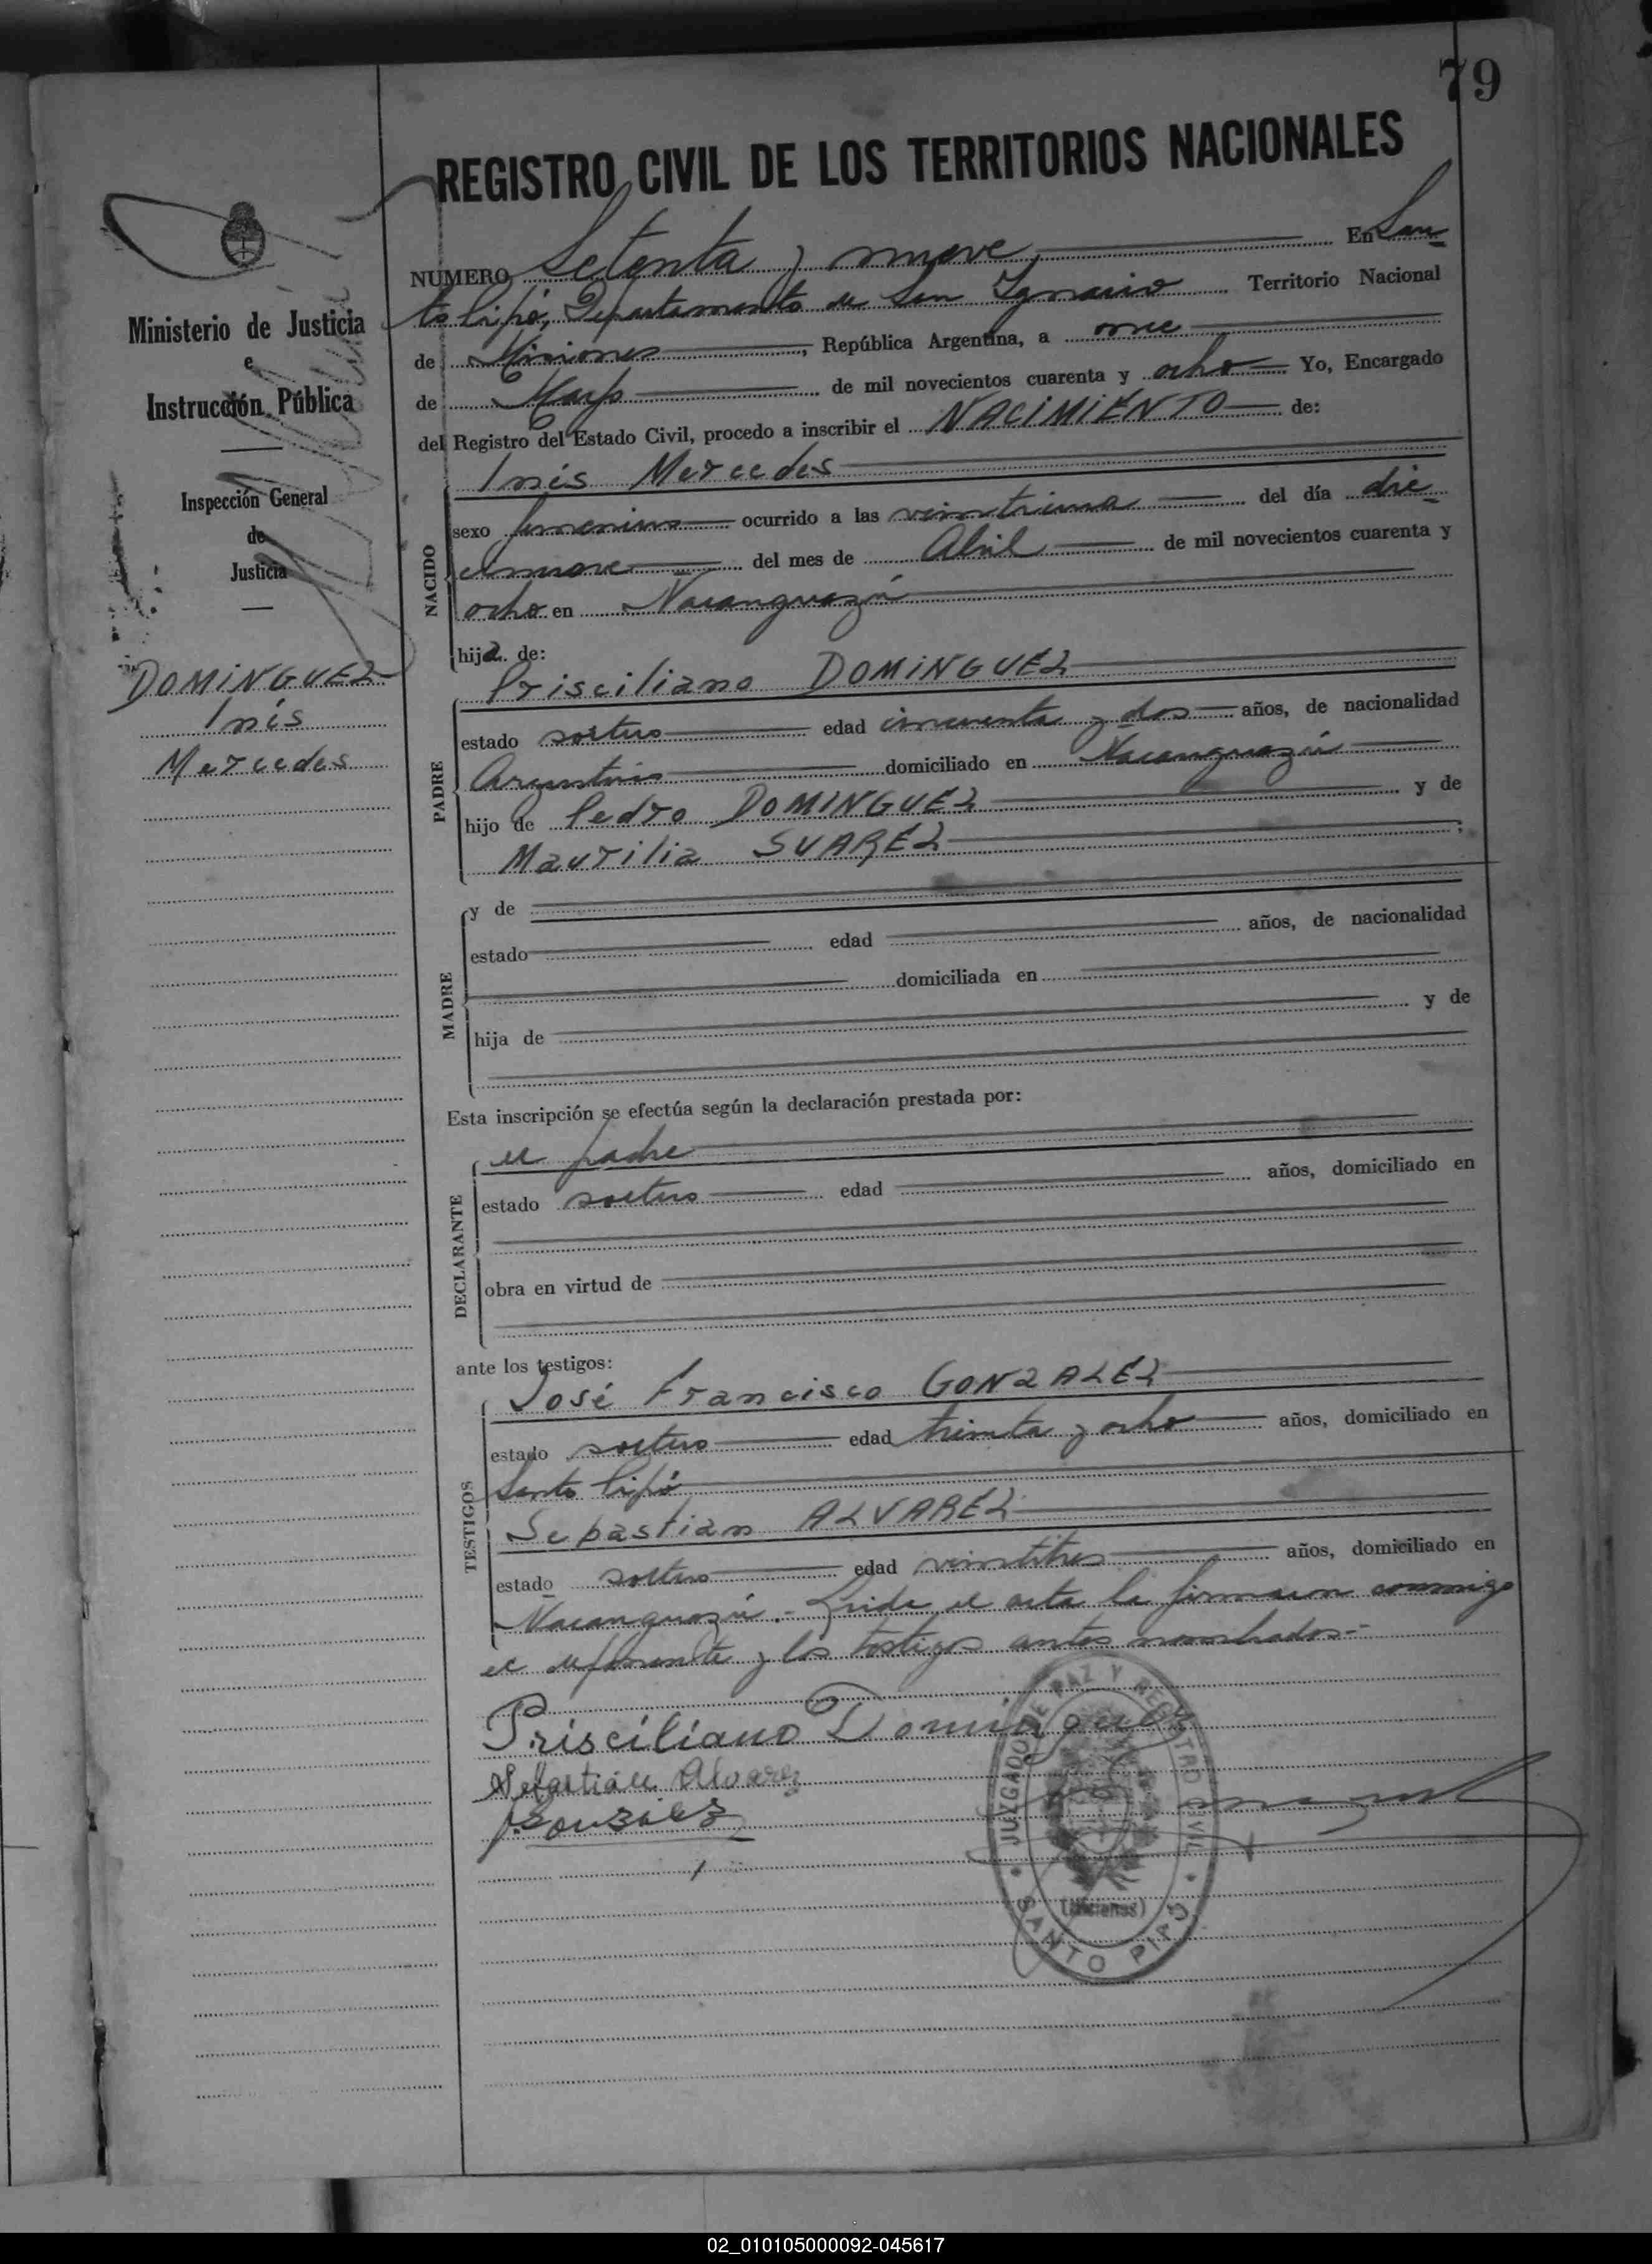 79
REGISTRO CIVIL DE LOS TERRITORIOS NACIONALES
Ministerio de Justicia
e
Instrucción Pública
Inspección General
de
Justicia
DOMINGUEZ
Inés
Mercedes
NUMERO Setenta y nueve En San-
to Pipó, Departamento de San Ignacio Territorio Nacional
de Misiones, República Argentina, a once
de Mayo de mil novecientos cuarenta y ocho Yo, Encargado
del Registro del Estado Civil, procedo a inscribir el NACIMIENTO de:
NACIDO
Inés Mercedes
sexo femenino ocurrido a las veintiuna del día die-
cinueve del mes de Abril de mil novecientos cuarenta y
ocho en Ñacanguazú
hija de:
PADRE
Prisciliano DOMINGUEZ
estado soltero edad cincuenta y dos años, de nacionalidad
Argentino domiciliado en Ñacanguazú
hijo de Pedro DOMINGUEZ y de
Maurilia SUAREZ;
MADRE
y de
estado edad años, de nacionalidad
domiciliada en
hija de y de
Esta inscripción se efectúa según la declaración prestada por:
DECLARANTE
el padre
estado soltero edad años, domiciliado en
obra en virtud de
ante los testigos:
TESTIGOS
José Francisco GONZALEZ
estado soltero edad treinta y ocho años, domiciliado en
Santo Pipó
Sebastian ALVAREZ
estado soltero edad veintitres años, domiciliado en
Ñacanguazú.- Leida el acta la firmaron conmigo
el deponente y los testigos antes nombrados.-
Prisciliano Dominguez
Sebastián Alvarez
González
JUZGADO DE PAZ Y REGISTRO CIVIL
(Misiones)
SANTO PIPÓ
02_010105000092-045617